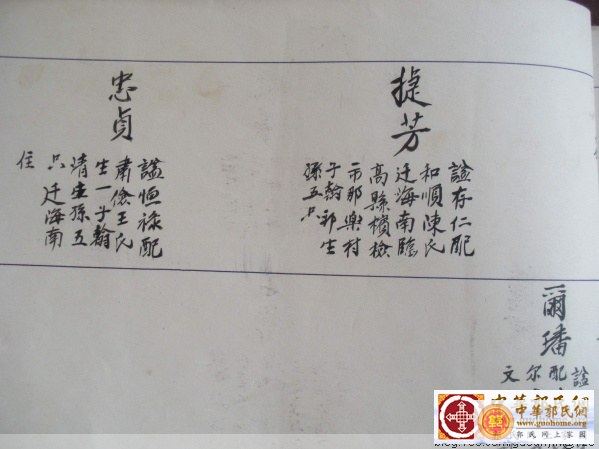 捷芳
諡存仁配
和順陳氏
迁海南臨
高縣檳檢
市那樂村
子翰祁生
孫五只
忠貞
諡恒祿配
肅儉王氏
生一子翰
清生孫五
只迁海南
住
爾璠
諡
配
尔
文
中華郭氏網
www.guohome.org
郭氏网上家園